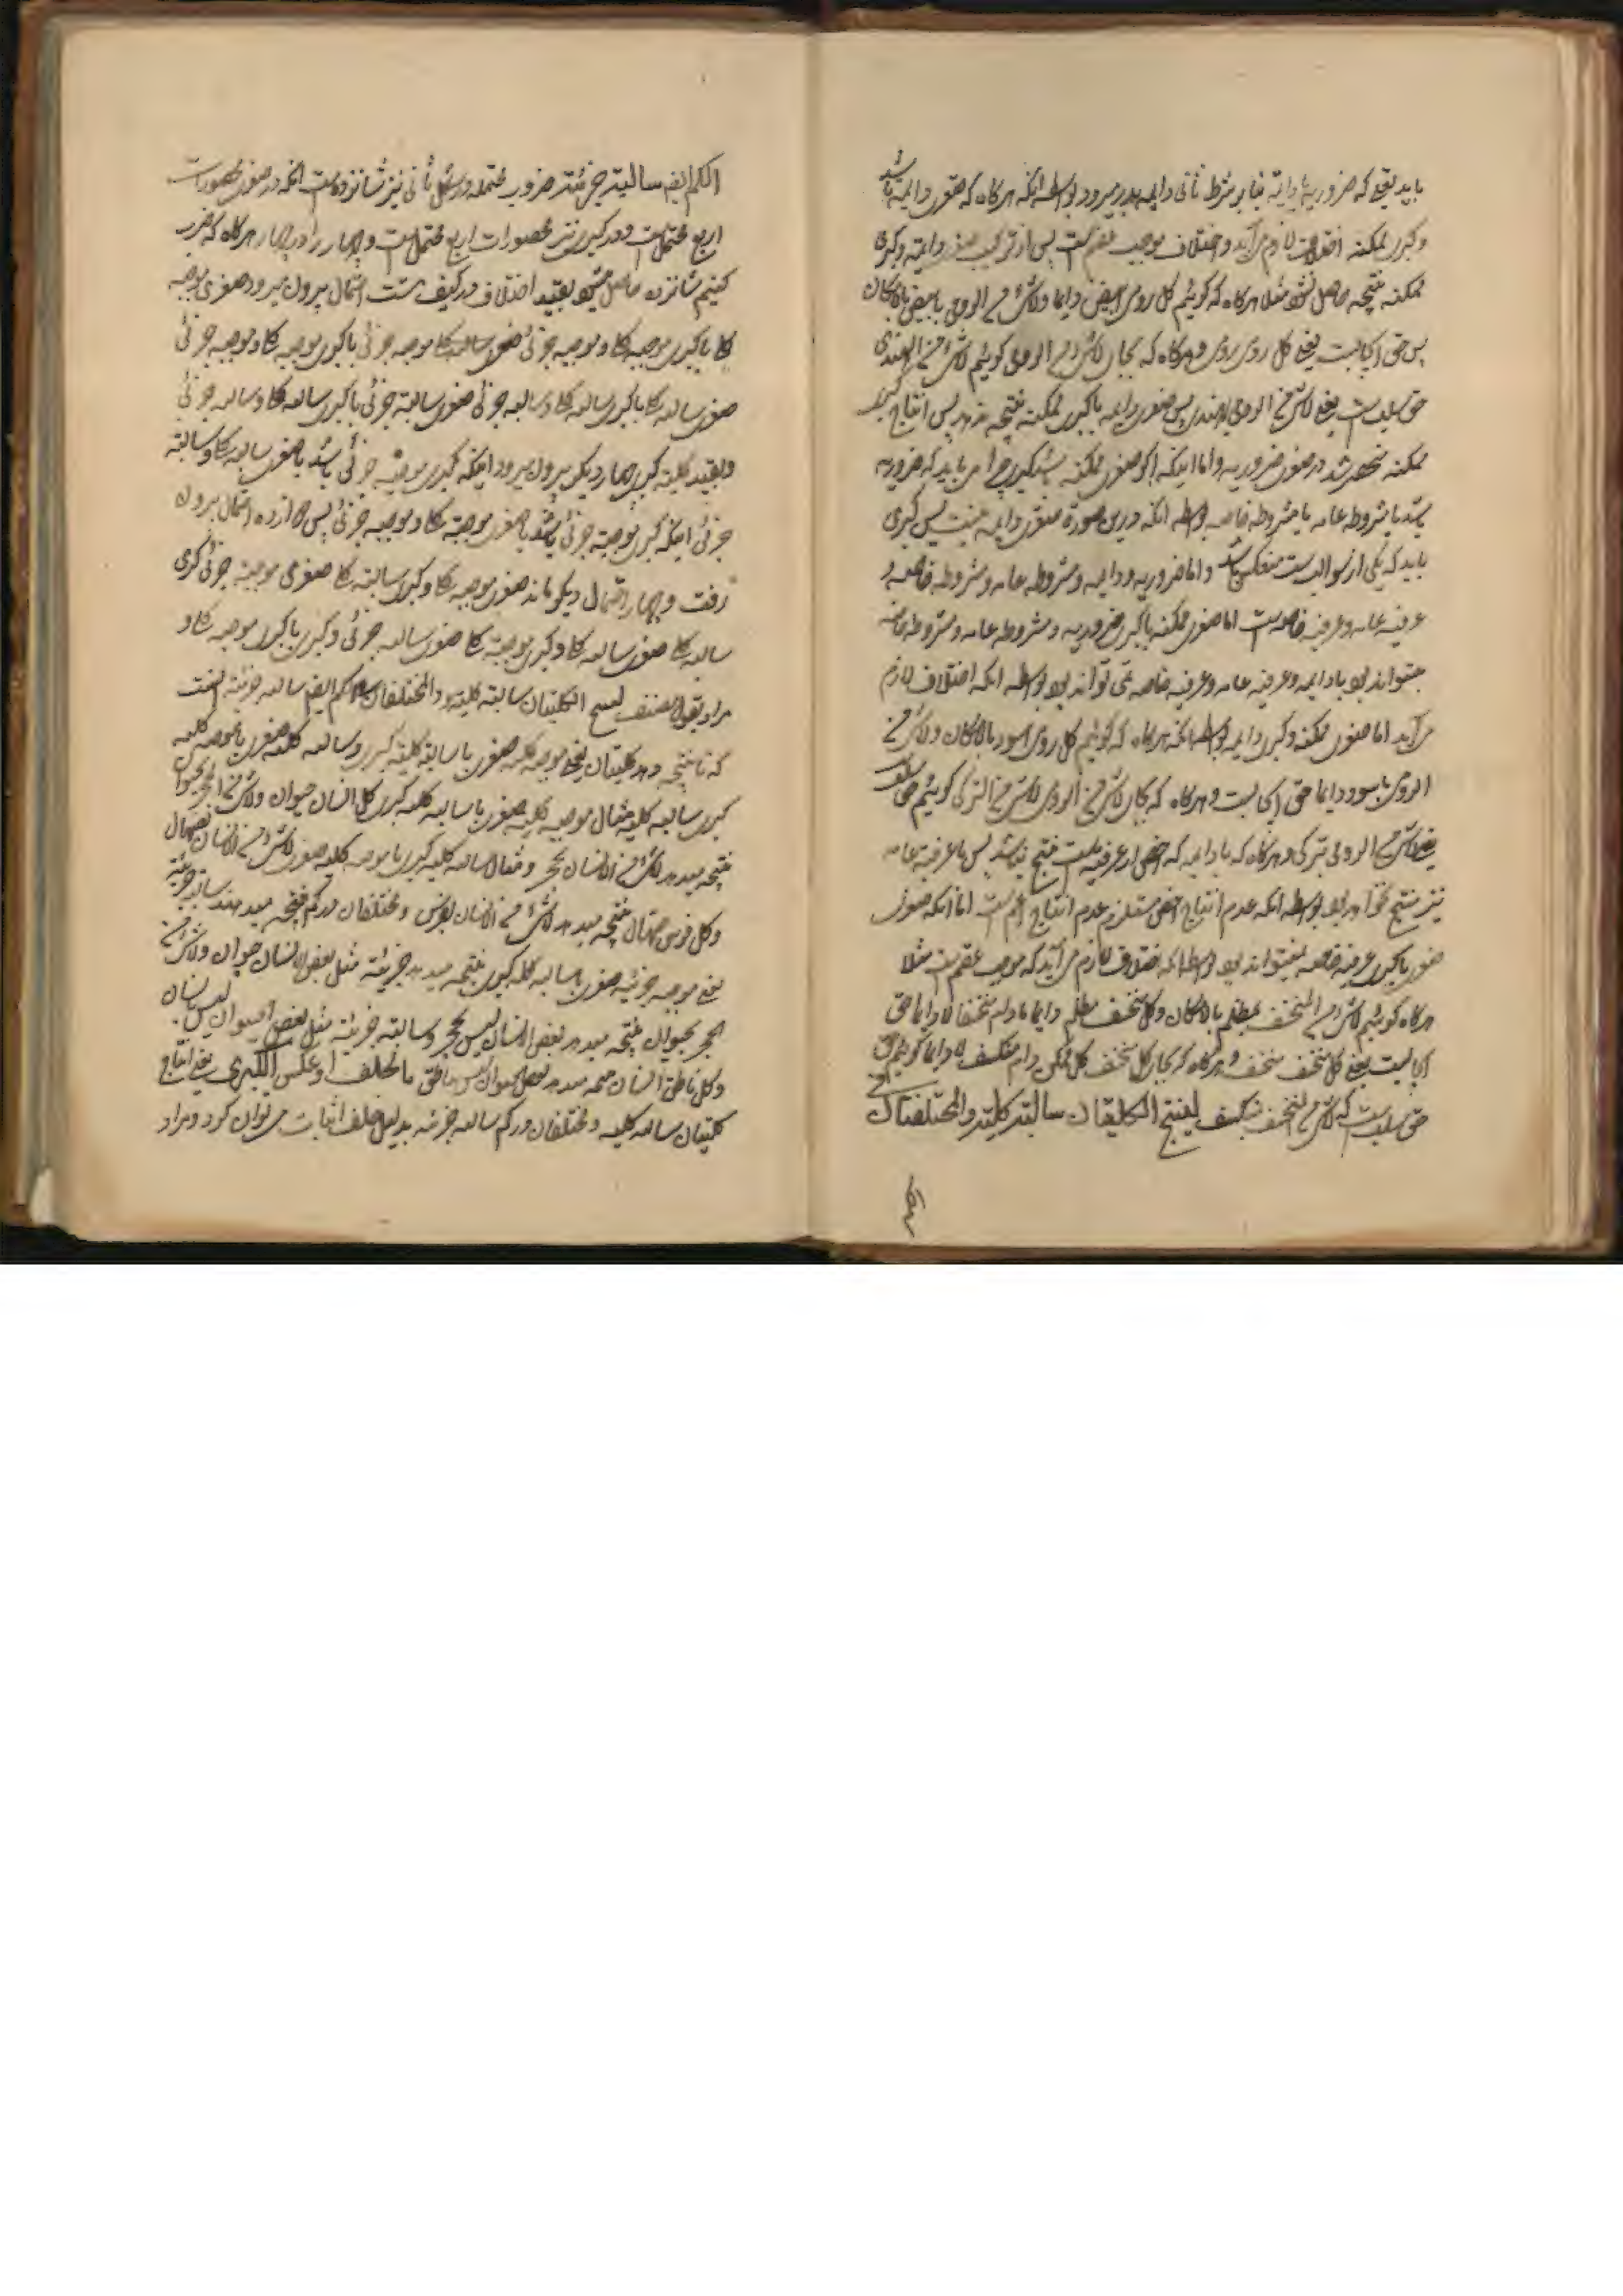 باید یعنی که ضروریه یا دایمه بنابر شرط ثانی دایمه بدر میرود بواسطه انکه هرکاه که صغری دایمه باشد
و کبری ممکنه اختلاف لازم می آید و اختلاف موجب عقم است پس از ترکیب صغری دایمه و کبری
ممکنه نتیجه حاصل نشود مثلا هرکاه که کوئیم کل رومی ابیض دایما و لاشئ من الرومی بابیض بالامکان
پس حق ایجابست یعنی کل رومی رومی و هرکاه که بجای لاشئ من الرومی کوئیم لاشئ من الهندی
حق سلب است یعنی لاشئ من الرومی بهندی پس صغری دایمه با کبری ممکنه نتیجه ندهد پس انتاج کبری
ممکنه منحصر شد در صغری ضروریه و اما اینکه اکر صغری ممکنه باشد کبری می باید که ضروریه
باشد یا مشروطه عامه یا مشروطه خاصه بواسطه انکه درین صورة صغری دایمه نیست پس کبری
باید که یکی از سوالب ست منعکس باشد و اما ضروریه و دایمه و مشروطه عامه و مشروطه خاصه و
عرفیه عامه و عرفیه خاصه است اما صغری ممکنه با کبری ضروریه و مشروطه عامه و مشروطه خاصه
میتواند بود با دایمه و عرفیه عامه و عرفیه خاصه نمی تواند بود بواسطه انکه اختلاف لازم
می آید اما صغری ممکنه و کبری دایمه بواسطه انکه هرکاه که کوئیم کل رومی اسود بالامکان و لاشئ من
الرومی باسود دایما حق ایجابست و هرکاه که بجای لاشئ من الرومی لاشئ من الترکی کوئیم حق سلب
یعنی لاشئ من الرومی بترکی و هرکاه که با دایمه که اخص از عرفیه است منتج نباشد پس با عرفیه عامه
نیز منتج نخواهد بود بواسطه انکه عدم انتاج اخص مستلزم عدم انتاج اعم است اما انکه صغری
صغری با کبری عرفیه خاصه نمیتواند بود بواسطه انکه اختلاف لازم می آید که موجب عقم است مثلا
هرکاه کوئیم لاشئ من المنخسف بمظلم بالامکان و کل منخسف مظلم دایما مادام منخسفا لا دایما حق
ایجابست یعنی کل منخسف منخسف و هرکاه که بجای کل منخسف کل
حق سلب است که لاشئ من المنخسف لینتج الکلیتان سالبة کلیة والمختلفتان فی
الکم
الکم ایضا سالبة جزئیة ضروب محتمله در شکل ثانی نیز شانزده است انکه در صغری محصورات
اربع محتملست و در کبری نیز محصورات اربع محتملست و چهار را در چهار هرکاه که ضرب
کنیم شانزده حاصل میشود بقید اختلاف در کیف هشت احتمال بیرون میرود صغری موجبه
کلی با کبری موجبه کلی و موجبه جزئی صغری موجبه جزئی با کبری موجبه کلی و موجبه جزئی
صغری سالبه کلی با کبری سالبه کلی و سالبه جزئی صغری سالبه جزئی با کبری سالبه کلی و سالبه جزئی
و بقید کلیة کبری چهار دیکر بیرون میرود اینکه کبری موجبه جزئی باشد با صغری سالبه کلی و سالبه
جزئی اینکه کبری جزئی باشد با صغری موجبه کلی و موجبه جزئی پس دوازده احتمال بیرون
رفت و چهار احتمال دیکر ماند صغری موجبه کلی و کبری سالبه کلی صغری موجبه جزئی کبری
سالبه کلی صغری سالبه کلی و کبری موجبه کلی صغری سالبه جزئی و کبری موجبه کلی و
مراد بقول مصنف لینتج الکلیتان سالبة کلیة والمختلفتان فی الکم ایضا سالبه جزئیه انست
که تا نتیجه دهد کلیتان یعنی موجبه کلیه صغری با سالبه کلیه کبری و سالبه کلیه صغری با موجبه کلیه
کبری سالبه کلیه مثال موجبه کلیه صغری با سالبه کلیه کبری کل انسان حیوان و لاشئ من الحجر بحیوان
نتیجه میدهد لاشئ من الانسان بحجر و مثال سالبه کلیه با موجبه کلیه کبری لاشئ من الانسان بصهال
و کل فرس صهال نتیجه میدهد لاشئ من الانسان بفرس و مختلفتان در کم نتیجه میدهند سالبه جزئیه
یعنی موجبه جزئیه صغری با سالبه کلیه کبری نتیجه میدهد جزئیه مثل بعض الانسان حیوان و لاشئ من
الحجر بحیوان نتیجه میدهد بعض الانسان لیس بحجر و سالبه جزئیه مثل بعض الحیوان لیس بانسان
و کل ناطق انسان نتیجه میدهد بعض الحیوان لیس بناطق بالخلف او عکس الکبری یعنی انتاج
کلیتان سالبه کلیه و مختلفتان در کم سالبه جزئیه بدلیل خلف اثبات میتوان کرد و مراد